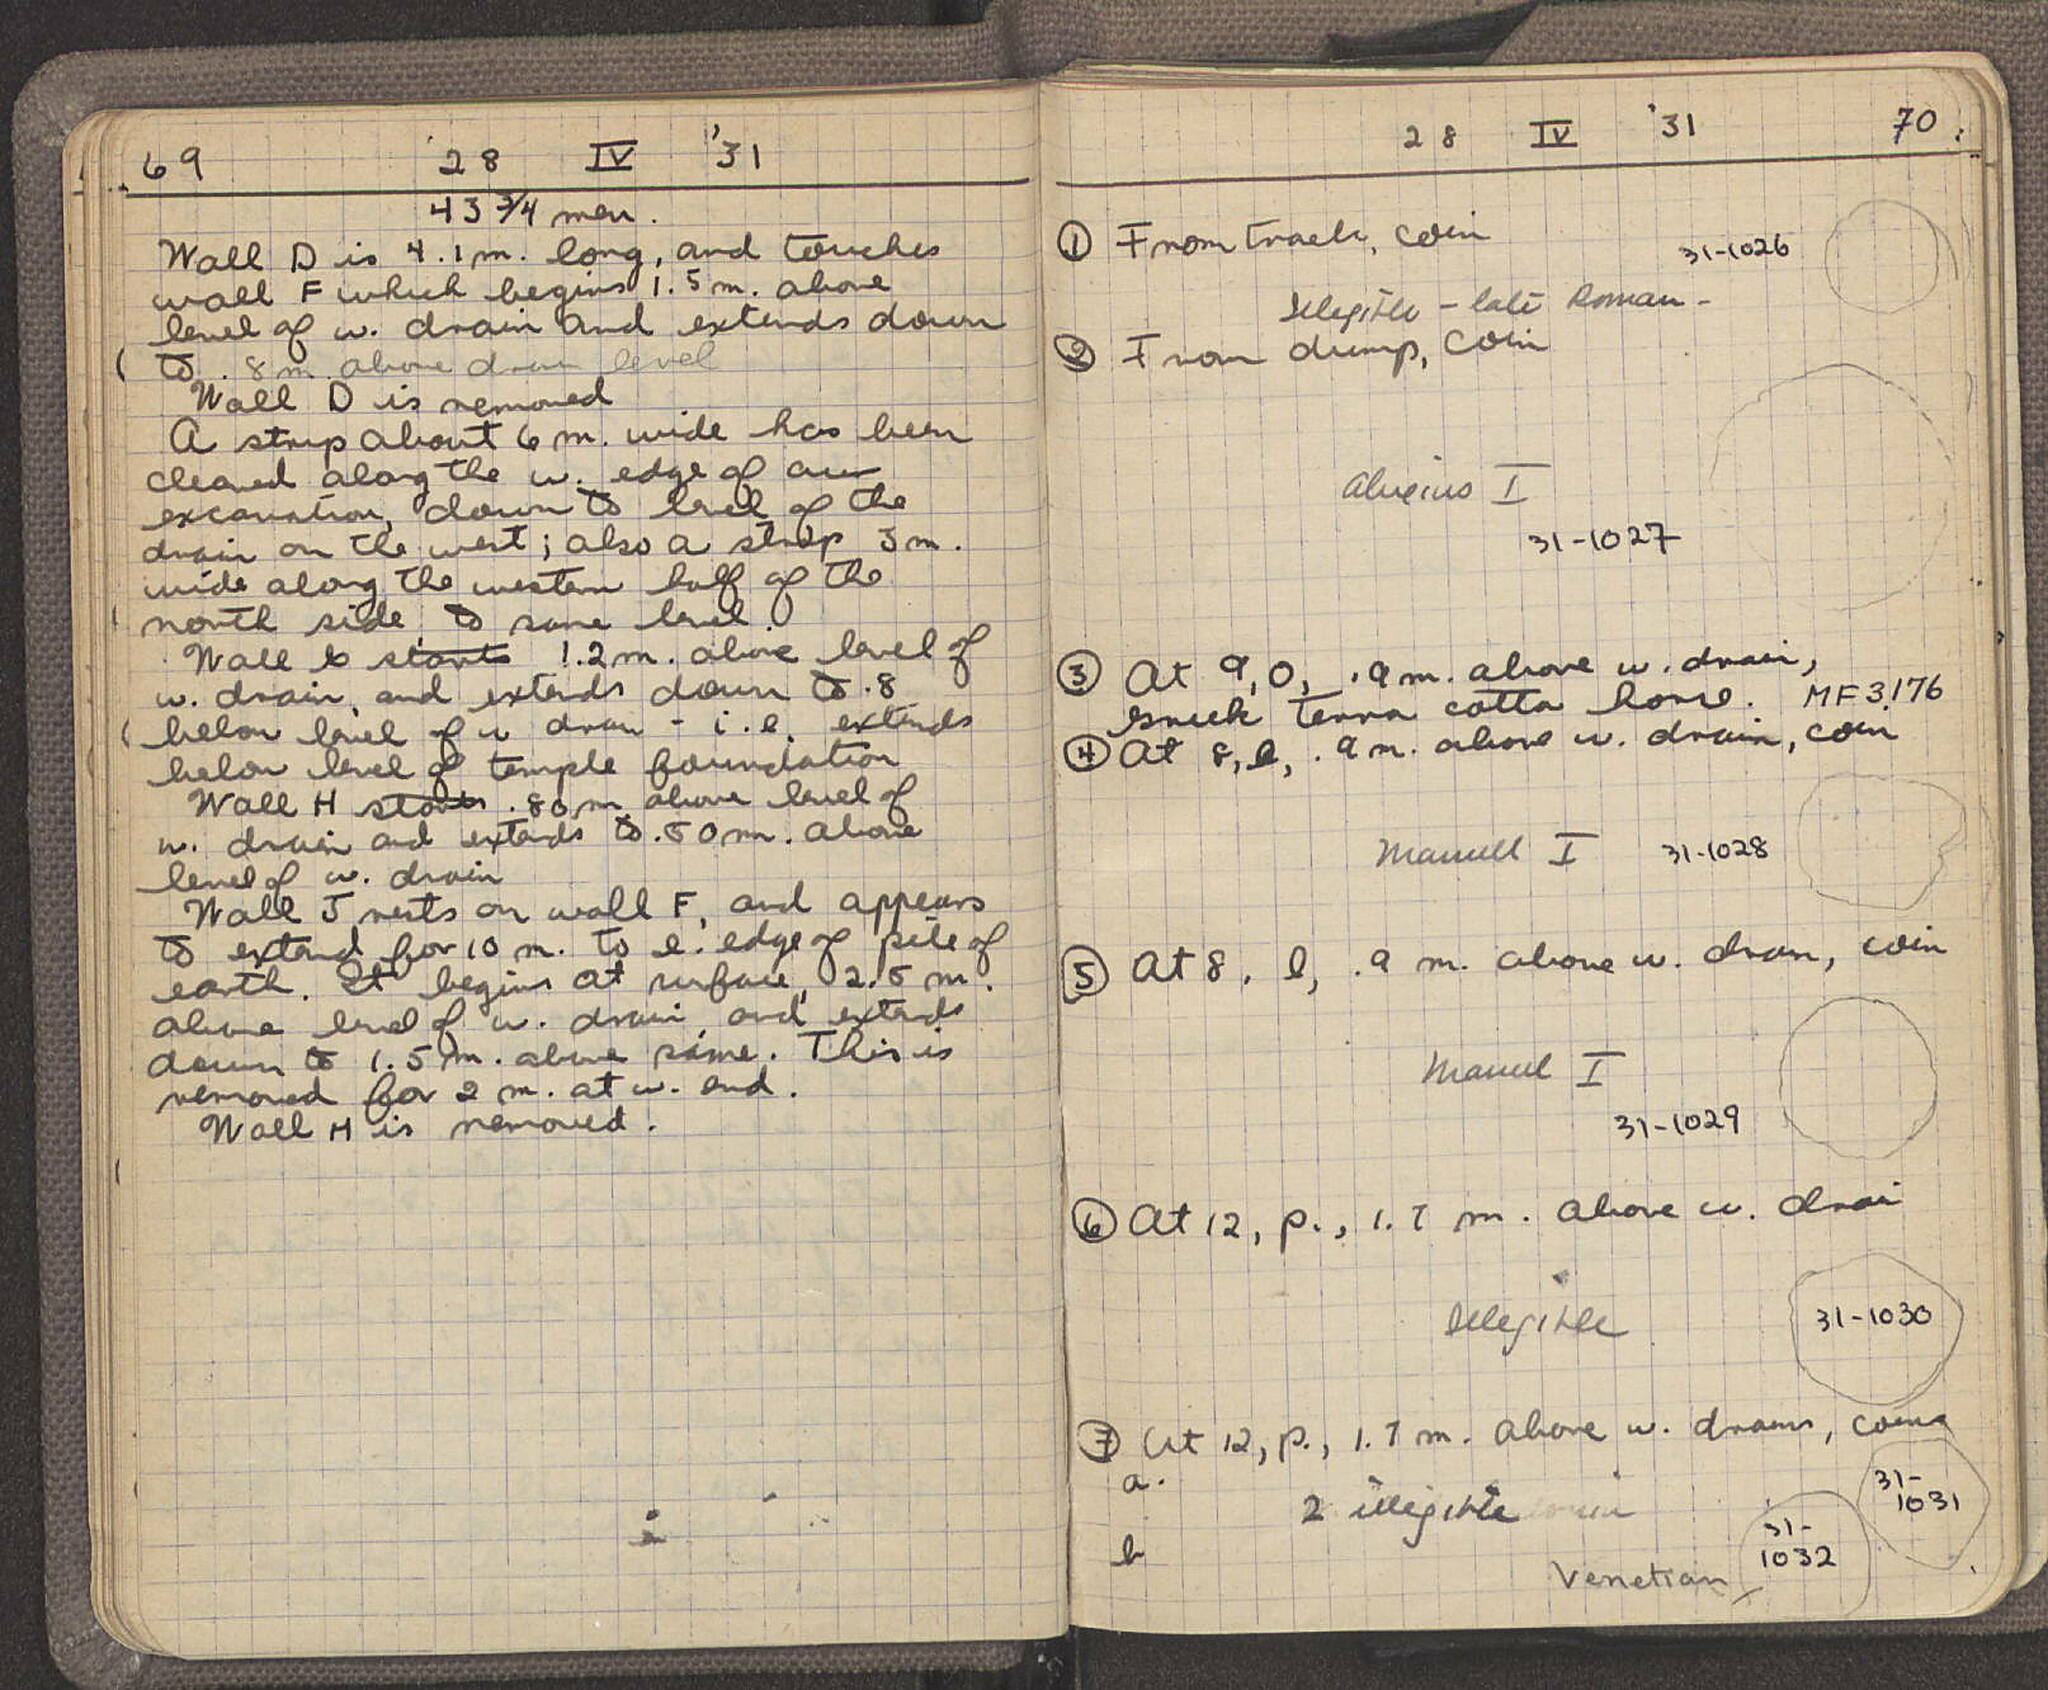 69 28 IV '31
43 3/4 men.
Wall D is 4.1 m. long, and touches
wall F which begins 1.5 m. above
level of w. drain and extends down
to .8 m. above drain level
Wall D is removed
A strip about 6 m. wide has been
cleared along the w. edge of our
excavation, down to level of the
drain on the west; also a strip 3 m.
wide along the western half of the
north side, to same level.
Wall starts 1.2 m. above level of
w. drain, and extends down to .8
below level of w drain - i.e. extends
below level of temple foundation
Wall H starts .80 m above level of
w. drain and extends to .50 m. above
level of w. drain
Wall J rests on wall F, and appears
to extend for 10 m. to e. edge of pile of
earth. It begins at surface, 2.5 m.
above level of w. drain, and extends
down to 1.5 m. above same. This is
removed for 2 m. at w. end.
Wall H is removed.
28 IV '31 70
① From track, coin
31-1026
Illegible - late Roman -
② From dump, coin
Alexius I
31-1027
③ At 9, O, .9 m. above w. drain,
Greek terra cotta horse. MF 3176
④ At 8, l, .9 m. above w. drain, coin
Manuel I 31-1028
⑤ At 8, l, .9 m. above w. drain, coin
Manuel I
31-1029
⑥ At 12, p., 1.7 m. above w. drain
Illegible 31-1030
⑦ At 12, p., 1.7 m. above w. drain, coins
a. 31-1031
2 illegible
b 31-1032
Venetian